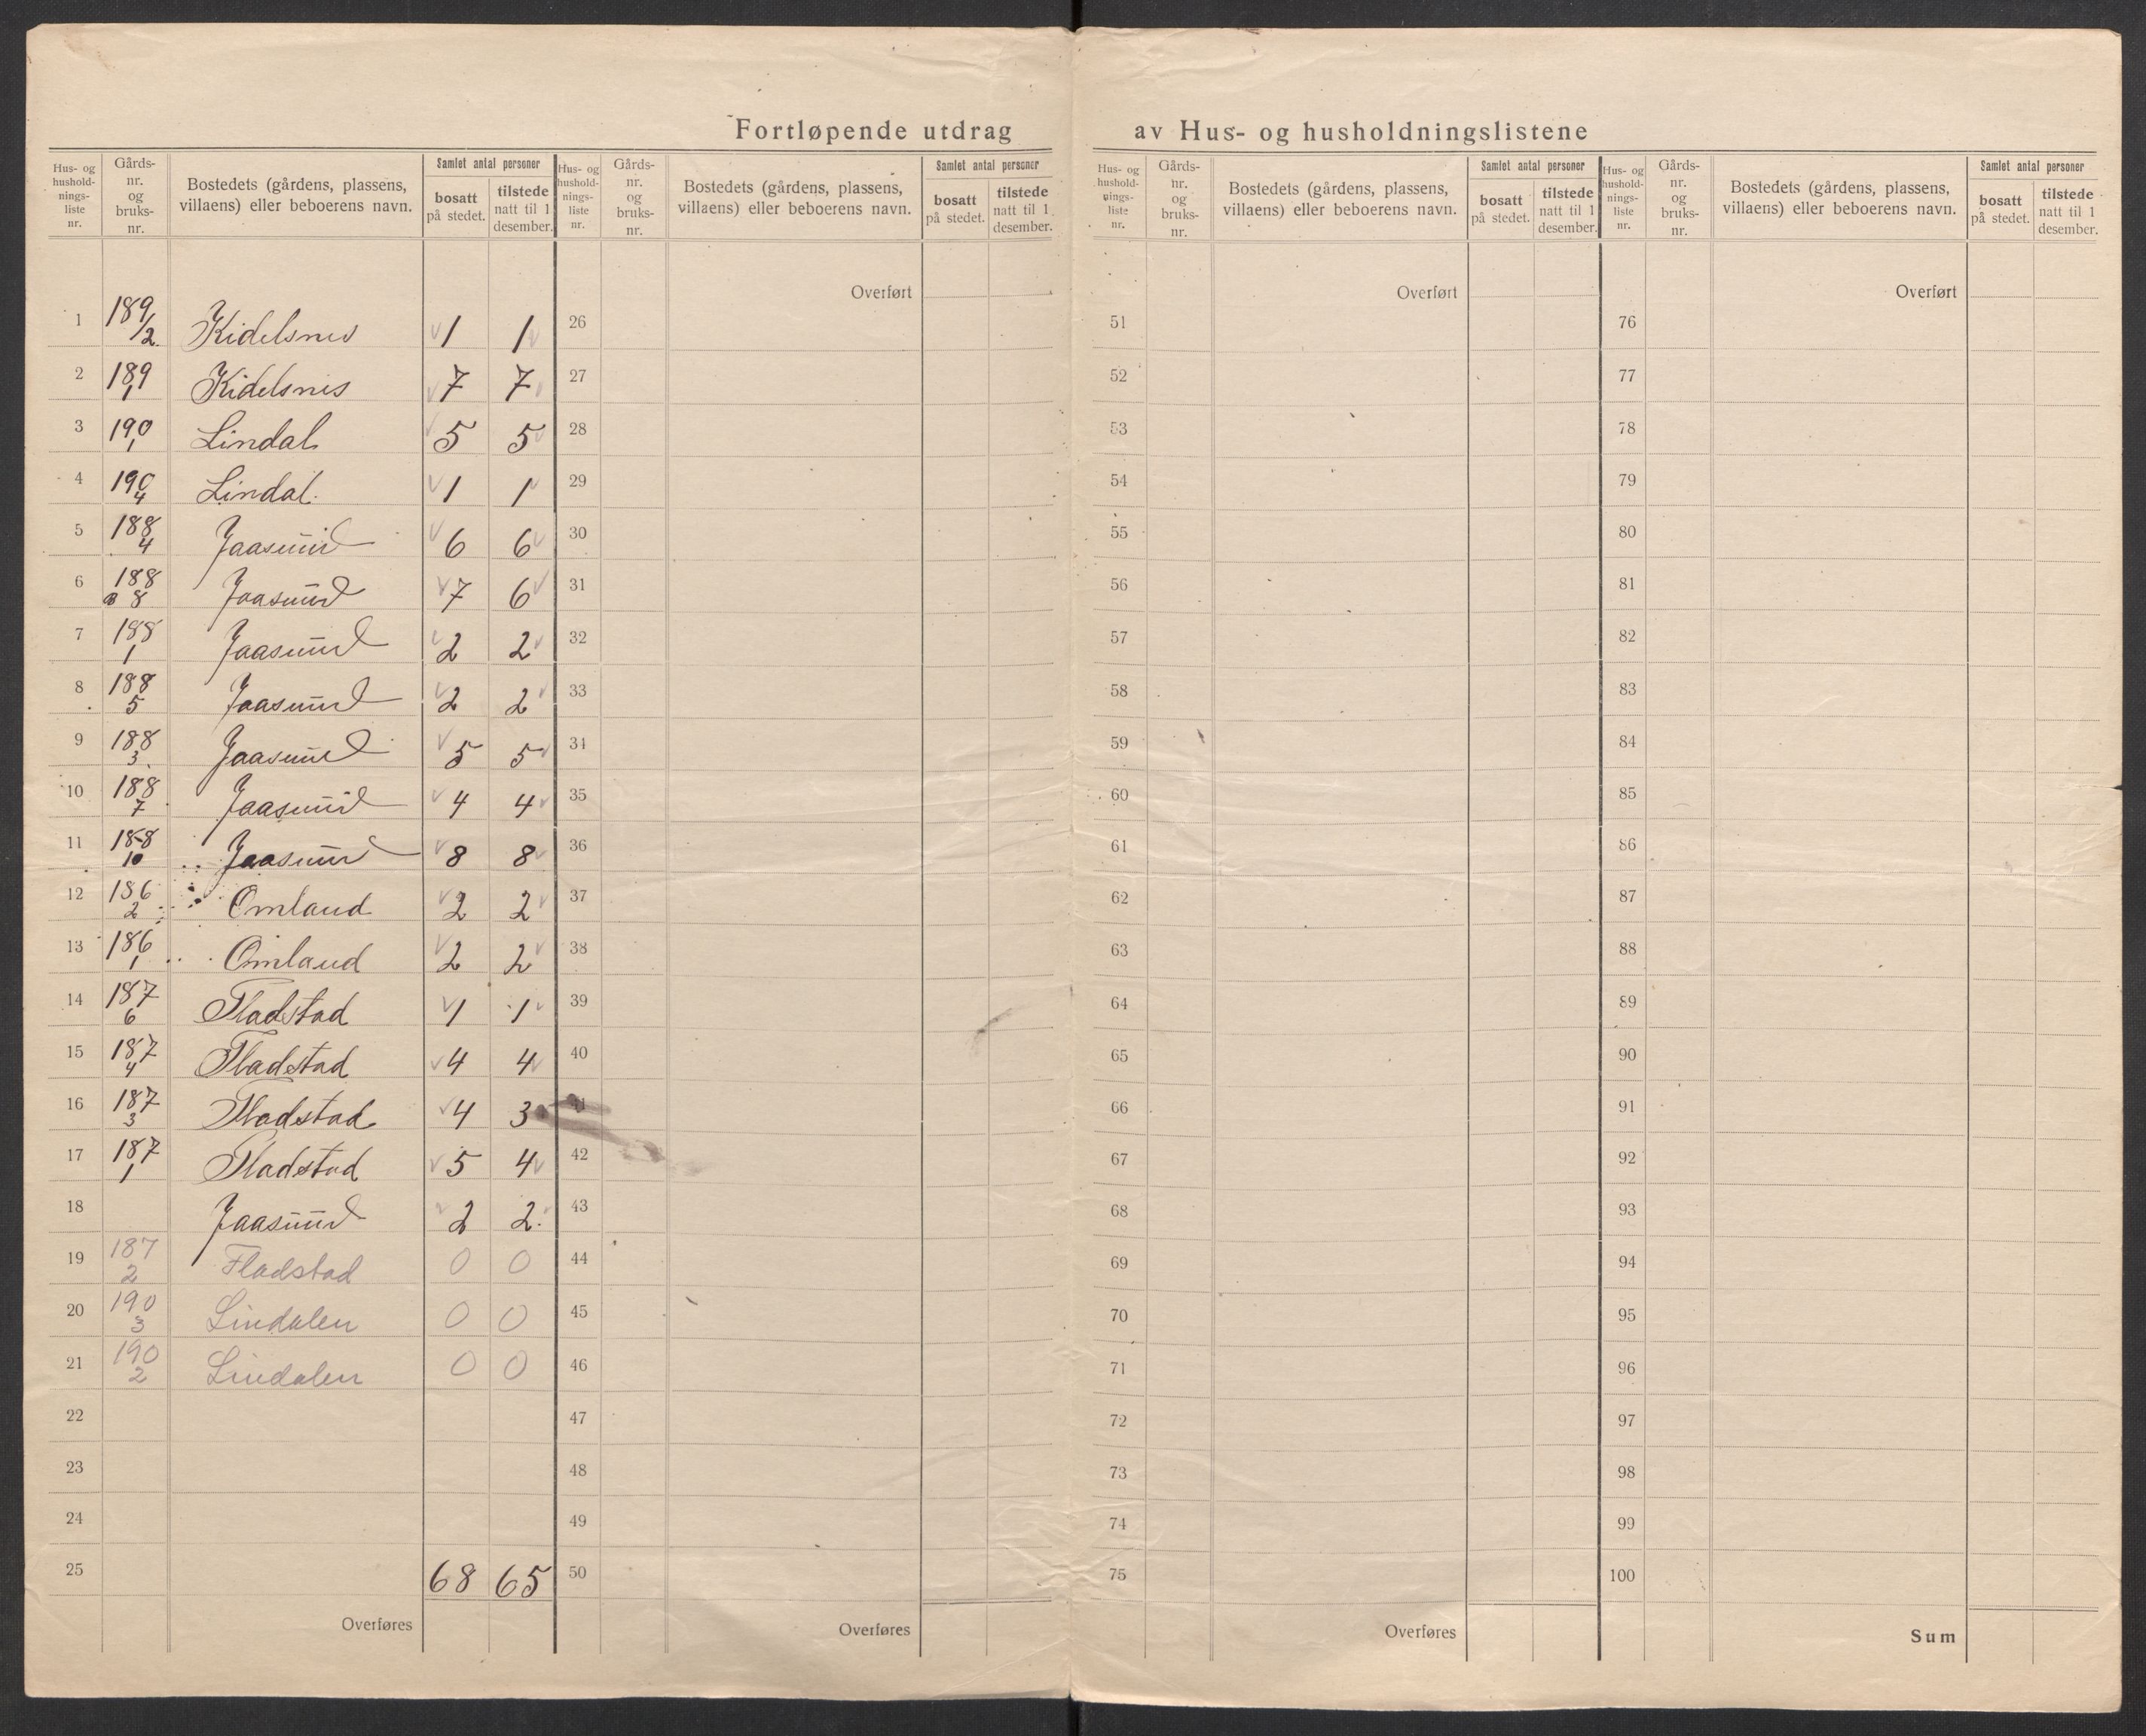 Fortløpende utdrag av Hus- og husholdningslistene
Hus- og hushold-nings-liste nr. | Gårds-nr. og bruks-nr. | Bostedets (gårdens, plassens, villaens) eller beboerens navn. | Samlet antal personer | bosatt på stedet. | tilstede natt til 1 desember.
Hus- og hushold-nings-liste nr. | Gårds-nr. og bruks-nr. | Bostedets (gårdens, plassens, villaens) eller beboerens navn. | Samlet antal personer | bosatt på stedet. | tilstede natt til 1 desember.
Hus- og hushold-nings-liste nr. | Gårds-nr. og bruks-nr. | Bostedets (gårdens, plassens, villaens) eller beboerens navn. | Samlet antal personer | bosatt på stedet. | tilstede natt til 1 desember.
Hus- og hushold-nings-liste nr. | Gårds-nr. og bruks-nr. | Bostedets (gårdens, plassens, villaens) eller beboerens navn. | Samlet antal personer | bosatt på stedet. | tilstede natt til 1 desember.
Overført Overført Overført
1 189/2. Kidelsnes 1 1 26 51 76
2 189 1 Kidelsnes 7 7 27 52 77
3 190 1 Lindal 5 5 28 53 78
4 190 4 Lindal. 1 1 29 54 79
5 188 4 Jaasund 6 6 30 55 80
6 188 8 Jaasund 7 6 31 56 81
7 188 1 Jaasund 2 2 32 57 82
8 188 5 Jaasund 2 2 33 58 83
9 188 3. Jaasund 5 5 34 59 84
10 188 7 Jaasund 4 4 35 60 85
11 188 10 Jaasund 8 8 36 61 86
12 186 2 Omland 2 2 37 62 87
13 186 1 Omland 2 2 38 63 88
14 187 6 Fladstad 1 1 39 64 89
15 187 4 Fladstad 4 4 40 65 90
16 187 3 Fladstad 4 3 41 66 91
17 187 1 Fladstad 5 4 42 67 92
18 Jaasund 2 2. 43 68 93
19 187 2 Fladstad 0 0 44 69 94
20 190 3 Lindalen 0 0 45 70 95
21 190 2 Lindalen 0 0 46 71 96
22 47 72 97
23 48 73 98
24 49 74 99
25 68 65 50 75 100
Overføres Overføres Overføres Sum